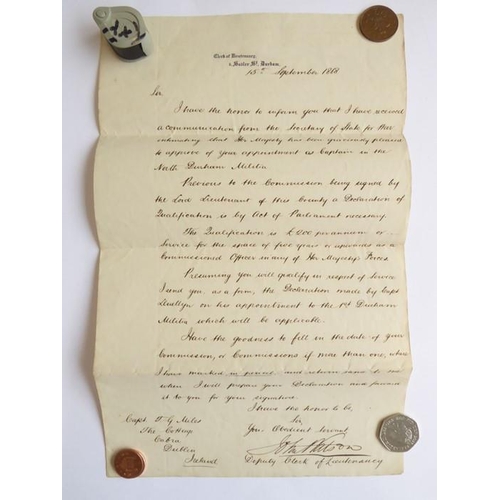 Clerk of Lieutenancy,
Durham.
15th September 1868
Sir
I have the honor to inform you that I have received
a communication from the Secretary of State for War
intimating that Her Majesty has been graciously pleased
to approve of your appointment as Captain in the
North Durham Militia
Previous to the Commission being signed by
the Lord Lieutenant of this County a Declaration of
Qualification is by Act of Parliament necessary.
The Qualification is per annum or
Service for the space of five years or upwards as a
Commissioned Officer in any of Her Majesty's Forces
Presuming you will qualify in respect of Service
I send you, as a form, the Declaration made by Capt
Llewellyn on his appointment to the 1st Durham
Militia which will be applicable.
Have the goodness to fill in the date of your
Commission, or Commissions if more than one, where
I have marked in pencil and return same to me
when I will prepare your Declaration and forward
it to you for your signature.
I have the honor to be,
Sir
Your Obedient Servant
John
Deputy Clerk of Lieutenancy
Capt. T G Miles
The Cottage
Cabra
Dublin
Ireland